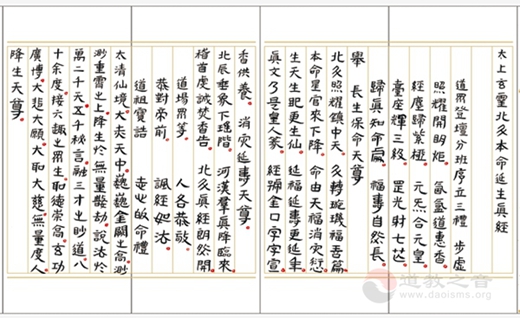 太上玄靈北斗本命延生真經
道眾登壇分班序立三禮 步虛
照耀開明炬 氤氳道蕙香
經塵歸紫極 元炁合元皇
臺座輝三級 罡光射七芒
歸真知命處 福壽自然長
舉 長生保命天尊
北斗照耀鎮中天 斗轉璇璣福吾篇
本命星官來下降 命由天福消災愆
生天生地更生仙 延福延壽更延年
真文了是皇人篆 經歸金口字字宣
香供養 消災延壽天尊
北辰垂象下瑤階 河漢羣真降臨來
稽首虔誠焚香告 北斗真經朗然開
道場眾等 人各恭敬
恭對帝前 諷經如法
道祖寶誥 志心皈命禮
太清仙境大赤天中巍巍金闕之高渺
渺重霄之上降生於無量劫說法於
萬二千天五千秘言融三才之妙道八
十餘度接六趣之眾生和德崇高玄功
廣博大慈大願大和大慈無量度人
降生天尊
道教之音
www.daoisms.org